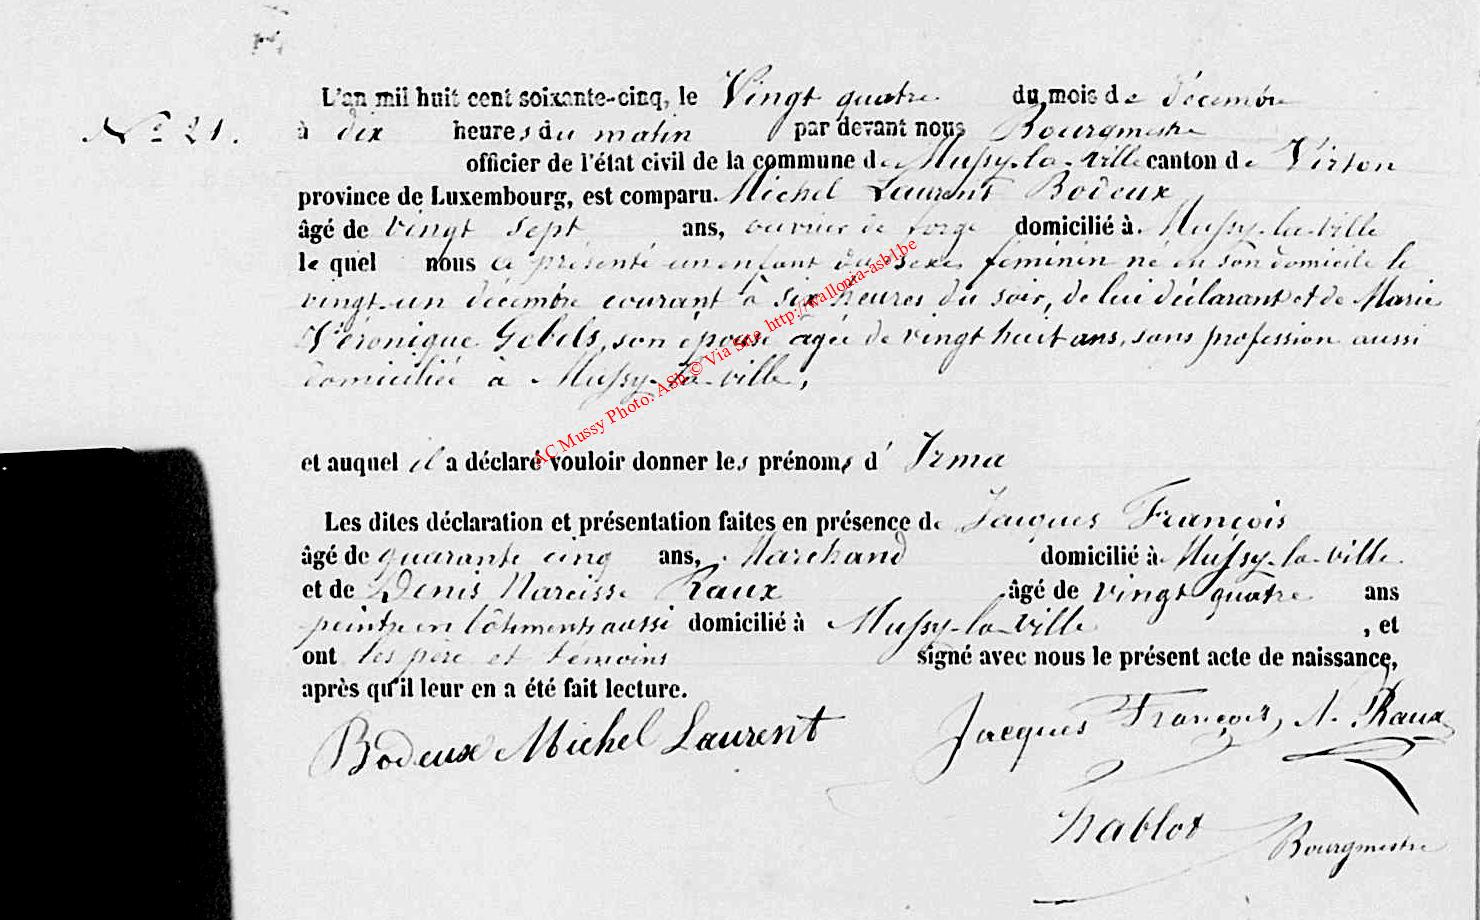 L'an mil huit cent soixante-cinq, le Vingt quatre du mois de décembre
N° 21. à dix heures du matin par devant nous Bourgmestre
officier de l'état civil de la commune de Mussy-la-Ville canton de Virton
province de Luxembourg, est comparu. Michel Laurent Bodeux
âgé de vingt sept ans, ouvrier de forge domicilié à Mussy-la-ville
le quel nous a présenté un enfant du sexe féminin né en son domicile le
vingt-un décembre courant à six heures du soir, de lui déclarant et de Marie
Véronique Gobels, son épouse agée de vingt huit ans, sans profession aussi
domiciliée à Mussy-la-ville,
AC Mussy Photo. ASb © Via Site http://wallonia-asbl.be
et auquel il a déclaré vouloir donner les prénoms d' Irma
Les dites déclaration et présentation faites en présence de Jacques François
âgé de quarante cinq ans, Marchand domicilié à Mussy-la-ville
et de Denis Narcisse Raux âgé de vingt quatre ans
peintre en bâtiments aussi domicilié à Mussy-la-Ville, et
ont les père et témoins signé avec nous le présent acte de naissance,
après qu'il leur en a été fait lecture.
Bodeux Michel Laurent Jacques François, N. Raux
Hablot Bourgmestre